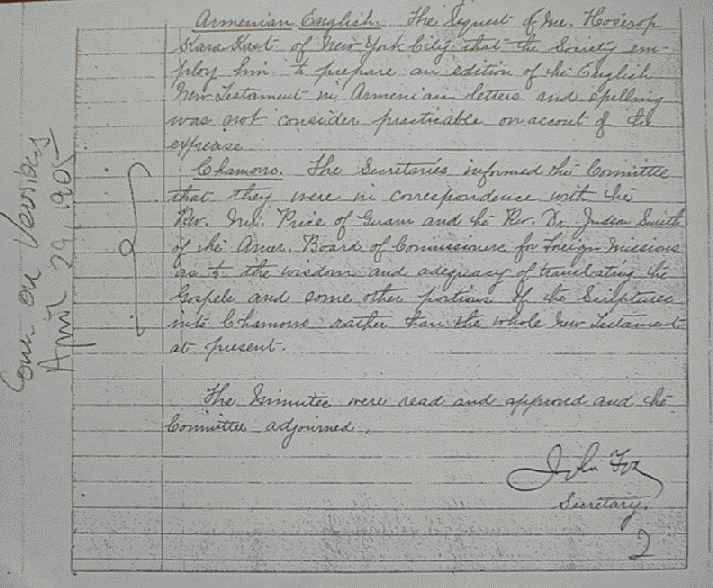 Armenian English. The request of Mr. Hoserop
Kara Hast of New York City that the Society em-
ploy him to prepare an edition of the English
New Testament in Armenian letters and spelling
was not consider practicable on accout of the
expense.
Chamorro. The Secretaries informed the Committee
that they were in correspondence with the
Rev. Mr. Price of Guam and the Rev. Dr. Judson Smith
of the Amer. Board of Commissioners for Foreign Missions
as to the wisdom and adequacy of translating the
Gospels and some other portions of the Scriptures
into Chamorro rather than the whole New Testament
at present.
The Minutes were read and approved and the
Committee adjourned.
John Fox
Secretary.
2
Com on Versions
April 29, 1905